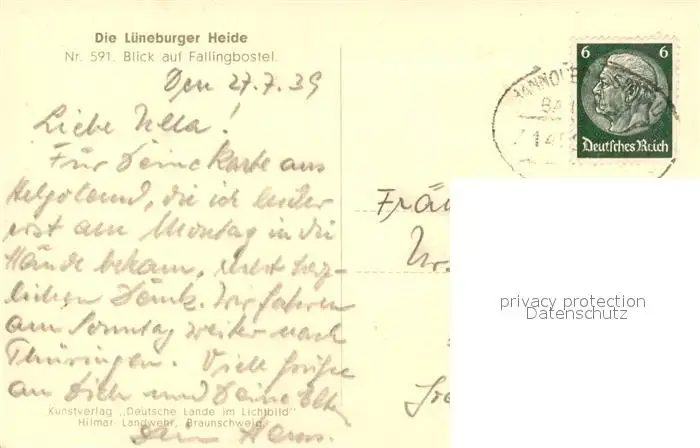 Die Lüneburger Heide
Nr. 591. Blick auf Fallingbostel.
Den 27.7.39
Liebe Ulla!
Für Deine Karte aus
Helgoland, die ich leider
erst am Montag in die
Hände bekam, herz-
lichen Dank. Wir fahren
am Sonntag weiter nach
Thüringen. Viele Grüße
an Dich und Deine Elt.
Dein Hans.
Kunstverlag „Deutsche Lande im Lichtbild"
Hilmar Landwehr, Braunschweig.
6 6
Deutsches Reich
HANNOVER
BA
Frä
privacy protection
Datenschutz